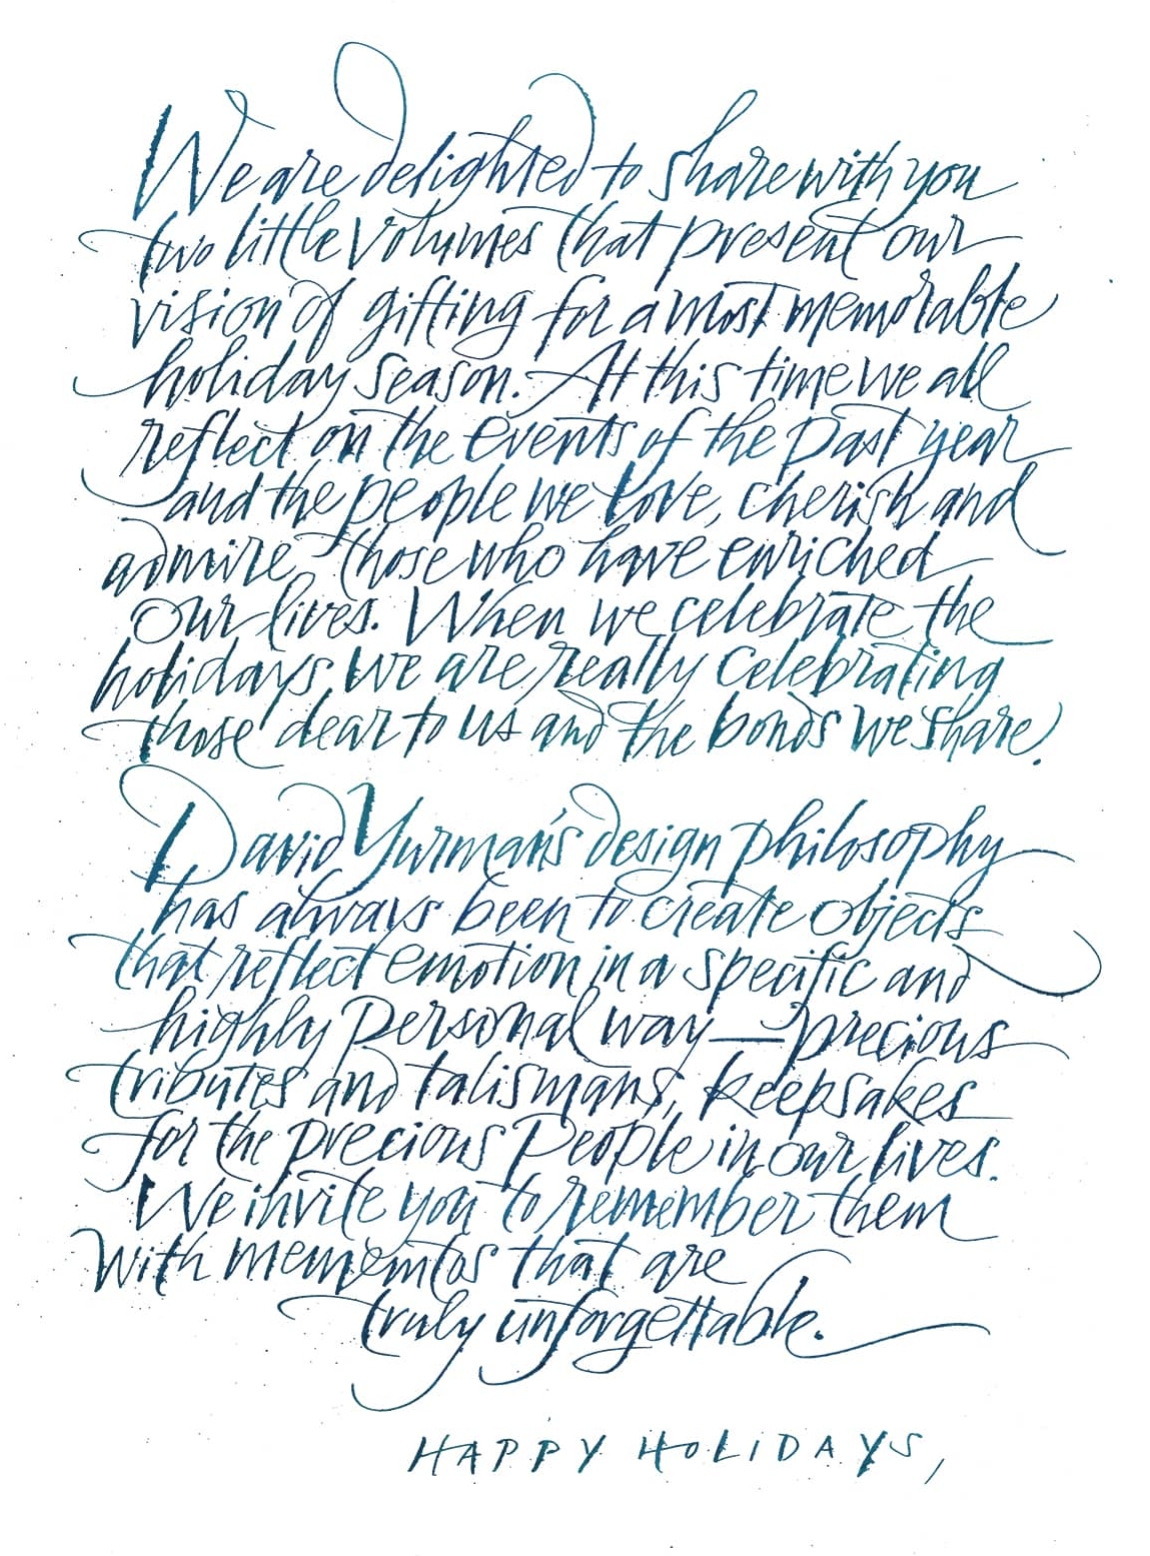 We are delighted to share with you
two little volumes that present our
vision of gifting for a most memorable
holiday season. At this time we all
reflect on the events of the past year
and the people we love, cherish and
admire - those who have enriched
our lives. When we celebrate the
holidays we are really celebrating
those dear to us and the bonds we share.
David Yurman's design philosophy
has always been to create objects
that reflect emotion in a specific and
highly personal way — precious
tributes and talismans, keepsakes
for the precious people in our lives.
We invite you to remember them
with mementos that are
truly unforgettable.
HAPPY HOLIDAYS,